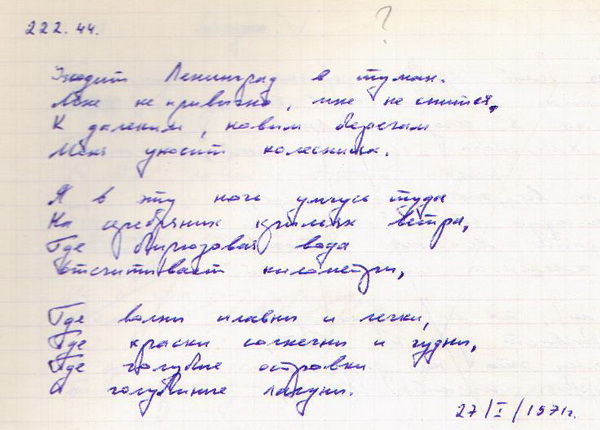 222.44.
?
Уходит Ленинград в туман.
Мне не привычно, мне не спится,
К далеким, новым берегам
Меня уносит колесница.
Я в эту ночь умчусь туда
На серебряных крыльях ветра,
Где бирюзовая вода
Отсчитывает километры,
Где волны плавны и легки,
Где краски солнечны и чудны,
Где голубые островки
И голубиные лагуны.
27/I/1971г.